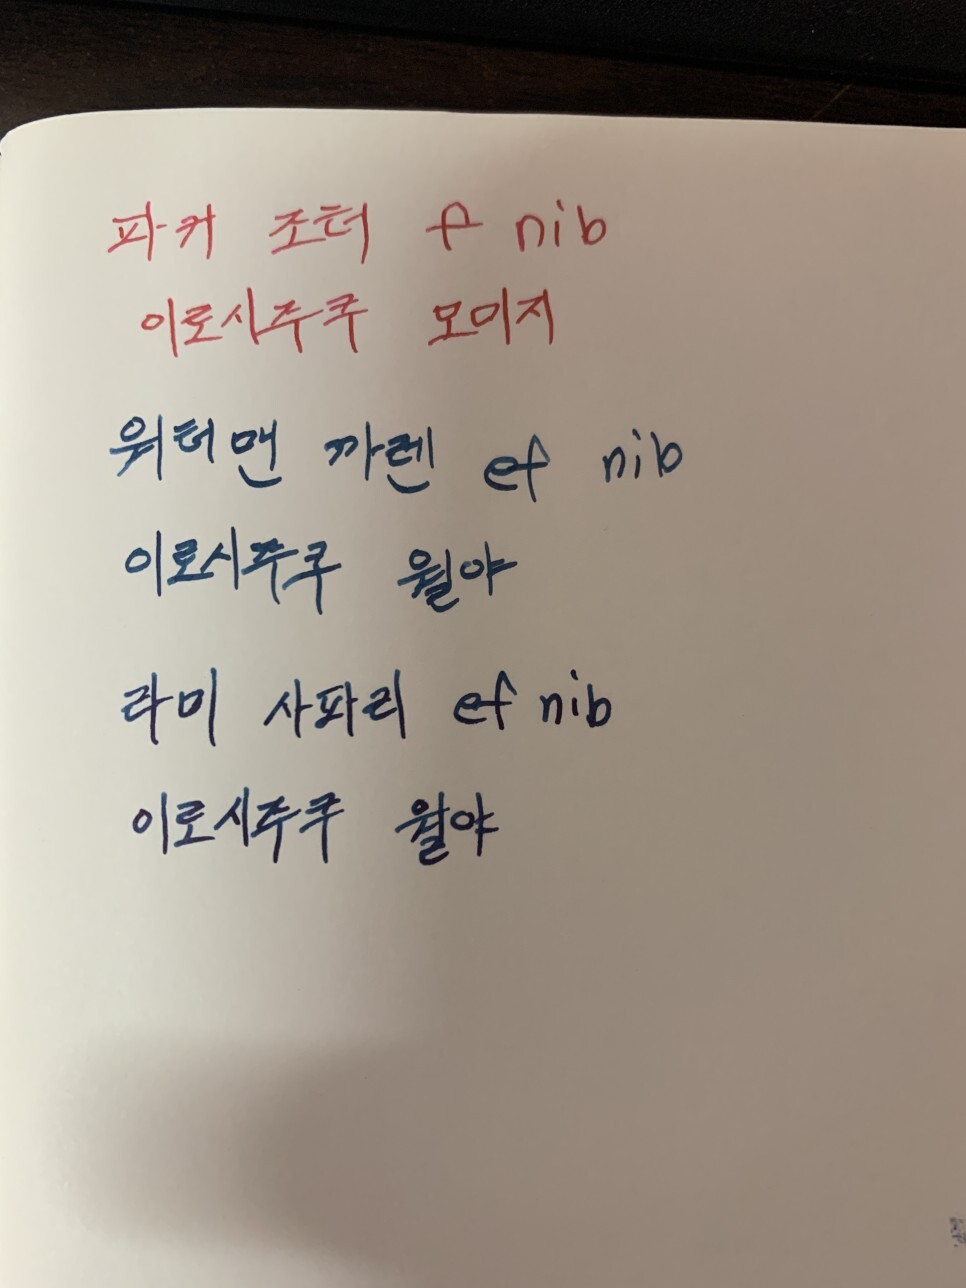 파커 조터 f nib
이로시주쿠 모미지
워터맨 까렌 ef nib
이로시주쿠 월야
라미 사파리 ef nib
이로시주쿠 월야